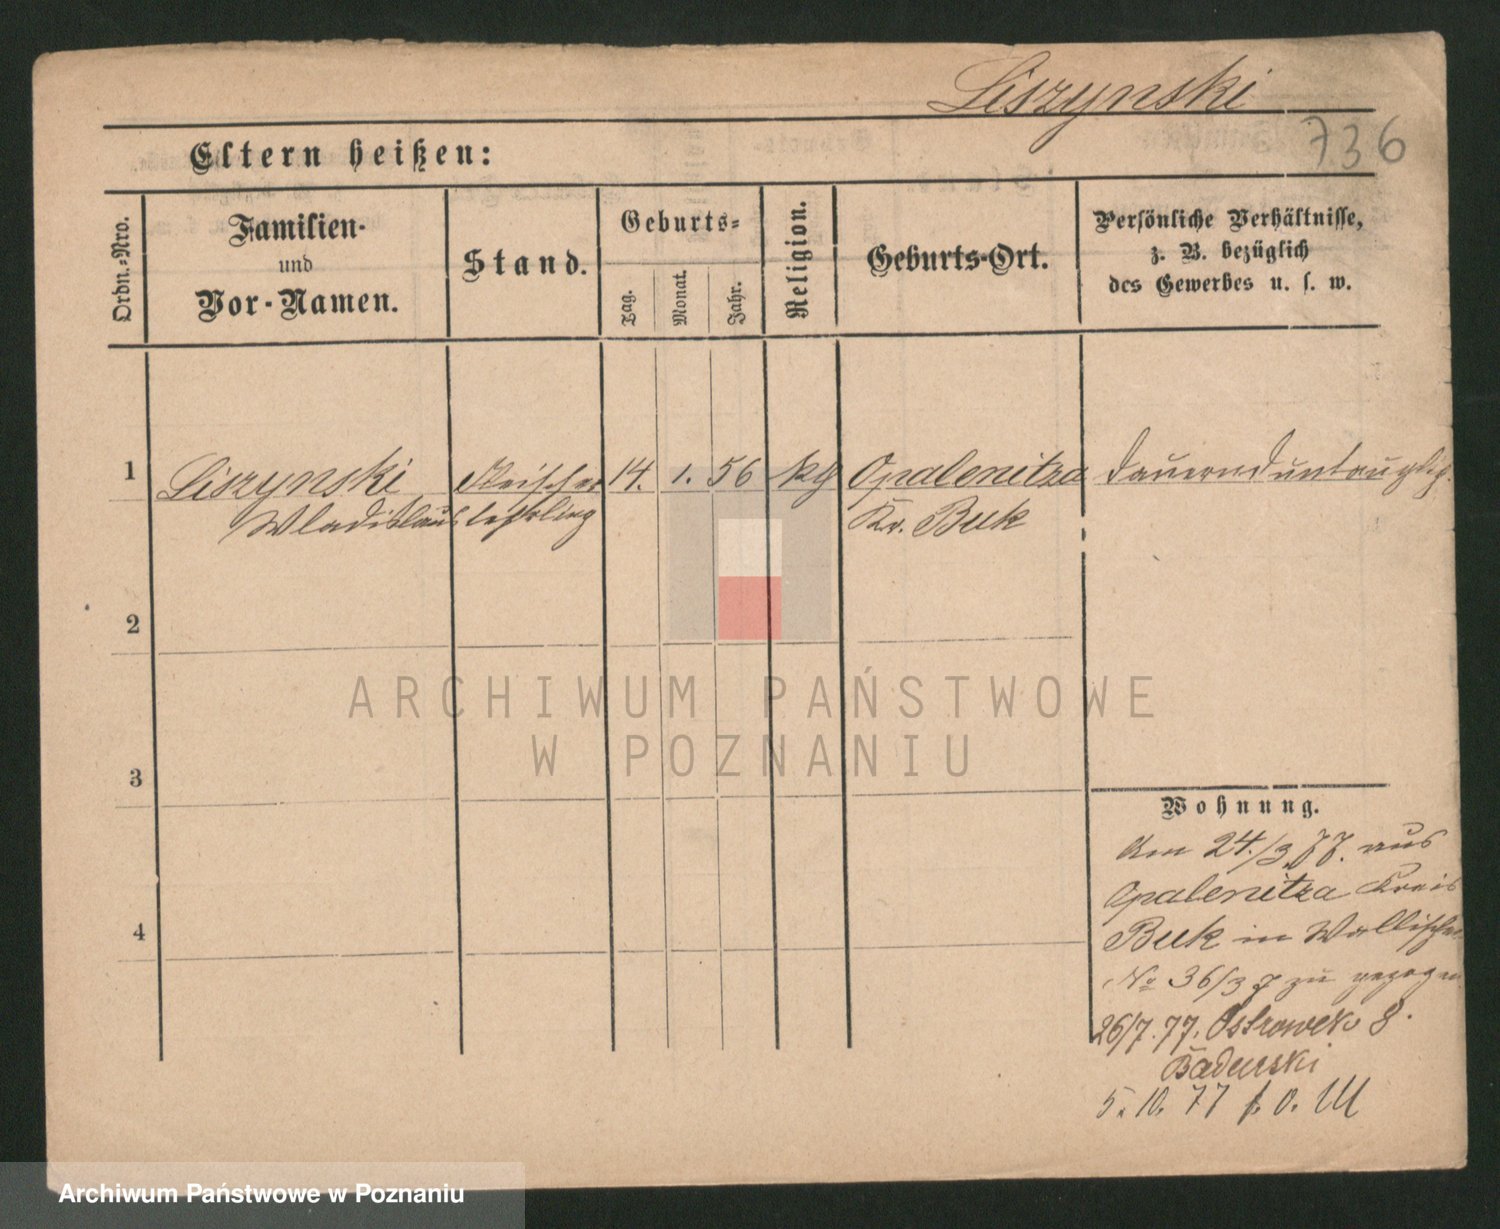 Liszynski
736
Eltern heißen:
Ordn.-Nro.
Familien-
und
Vor-Namen.
Stand.
Geburts-
Tag.
Monat.
Jahr.
Religion.
Geburts-Ort.
Persönliche Verhältnisse,
z. B. bezüglich
des Gewerbes u. s. w.
1
Liszynski
Wladislaus
Fleischer
lehrling
14. 1. 56
kth
Opalenitza
Kr. Buk
dauernd untauglich
2
3
4
ARCHIWUM PAŃSTWOWE
W POZNANIU
Wohnung.
Am 24./3. 77. aus
Opalenitza Kreis
Buk in Wallischei
No 36/37 zu gezogen
26/7. 77. Ostrowek 8.
Badurski
5. 10. 77
Archiwum Państwowe w Poznaniu